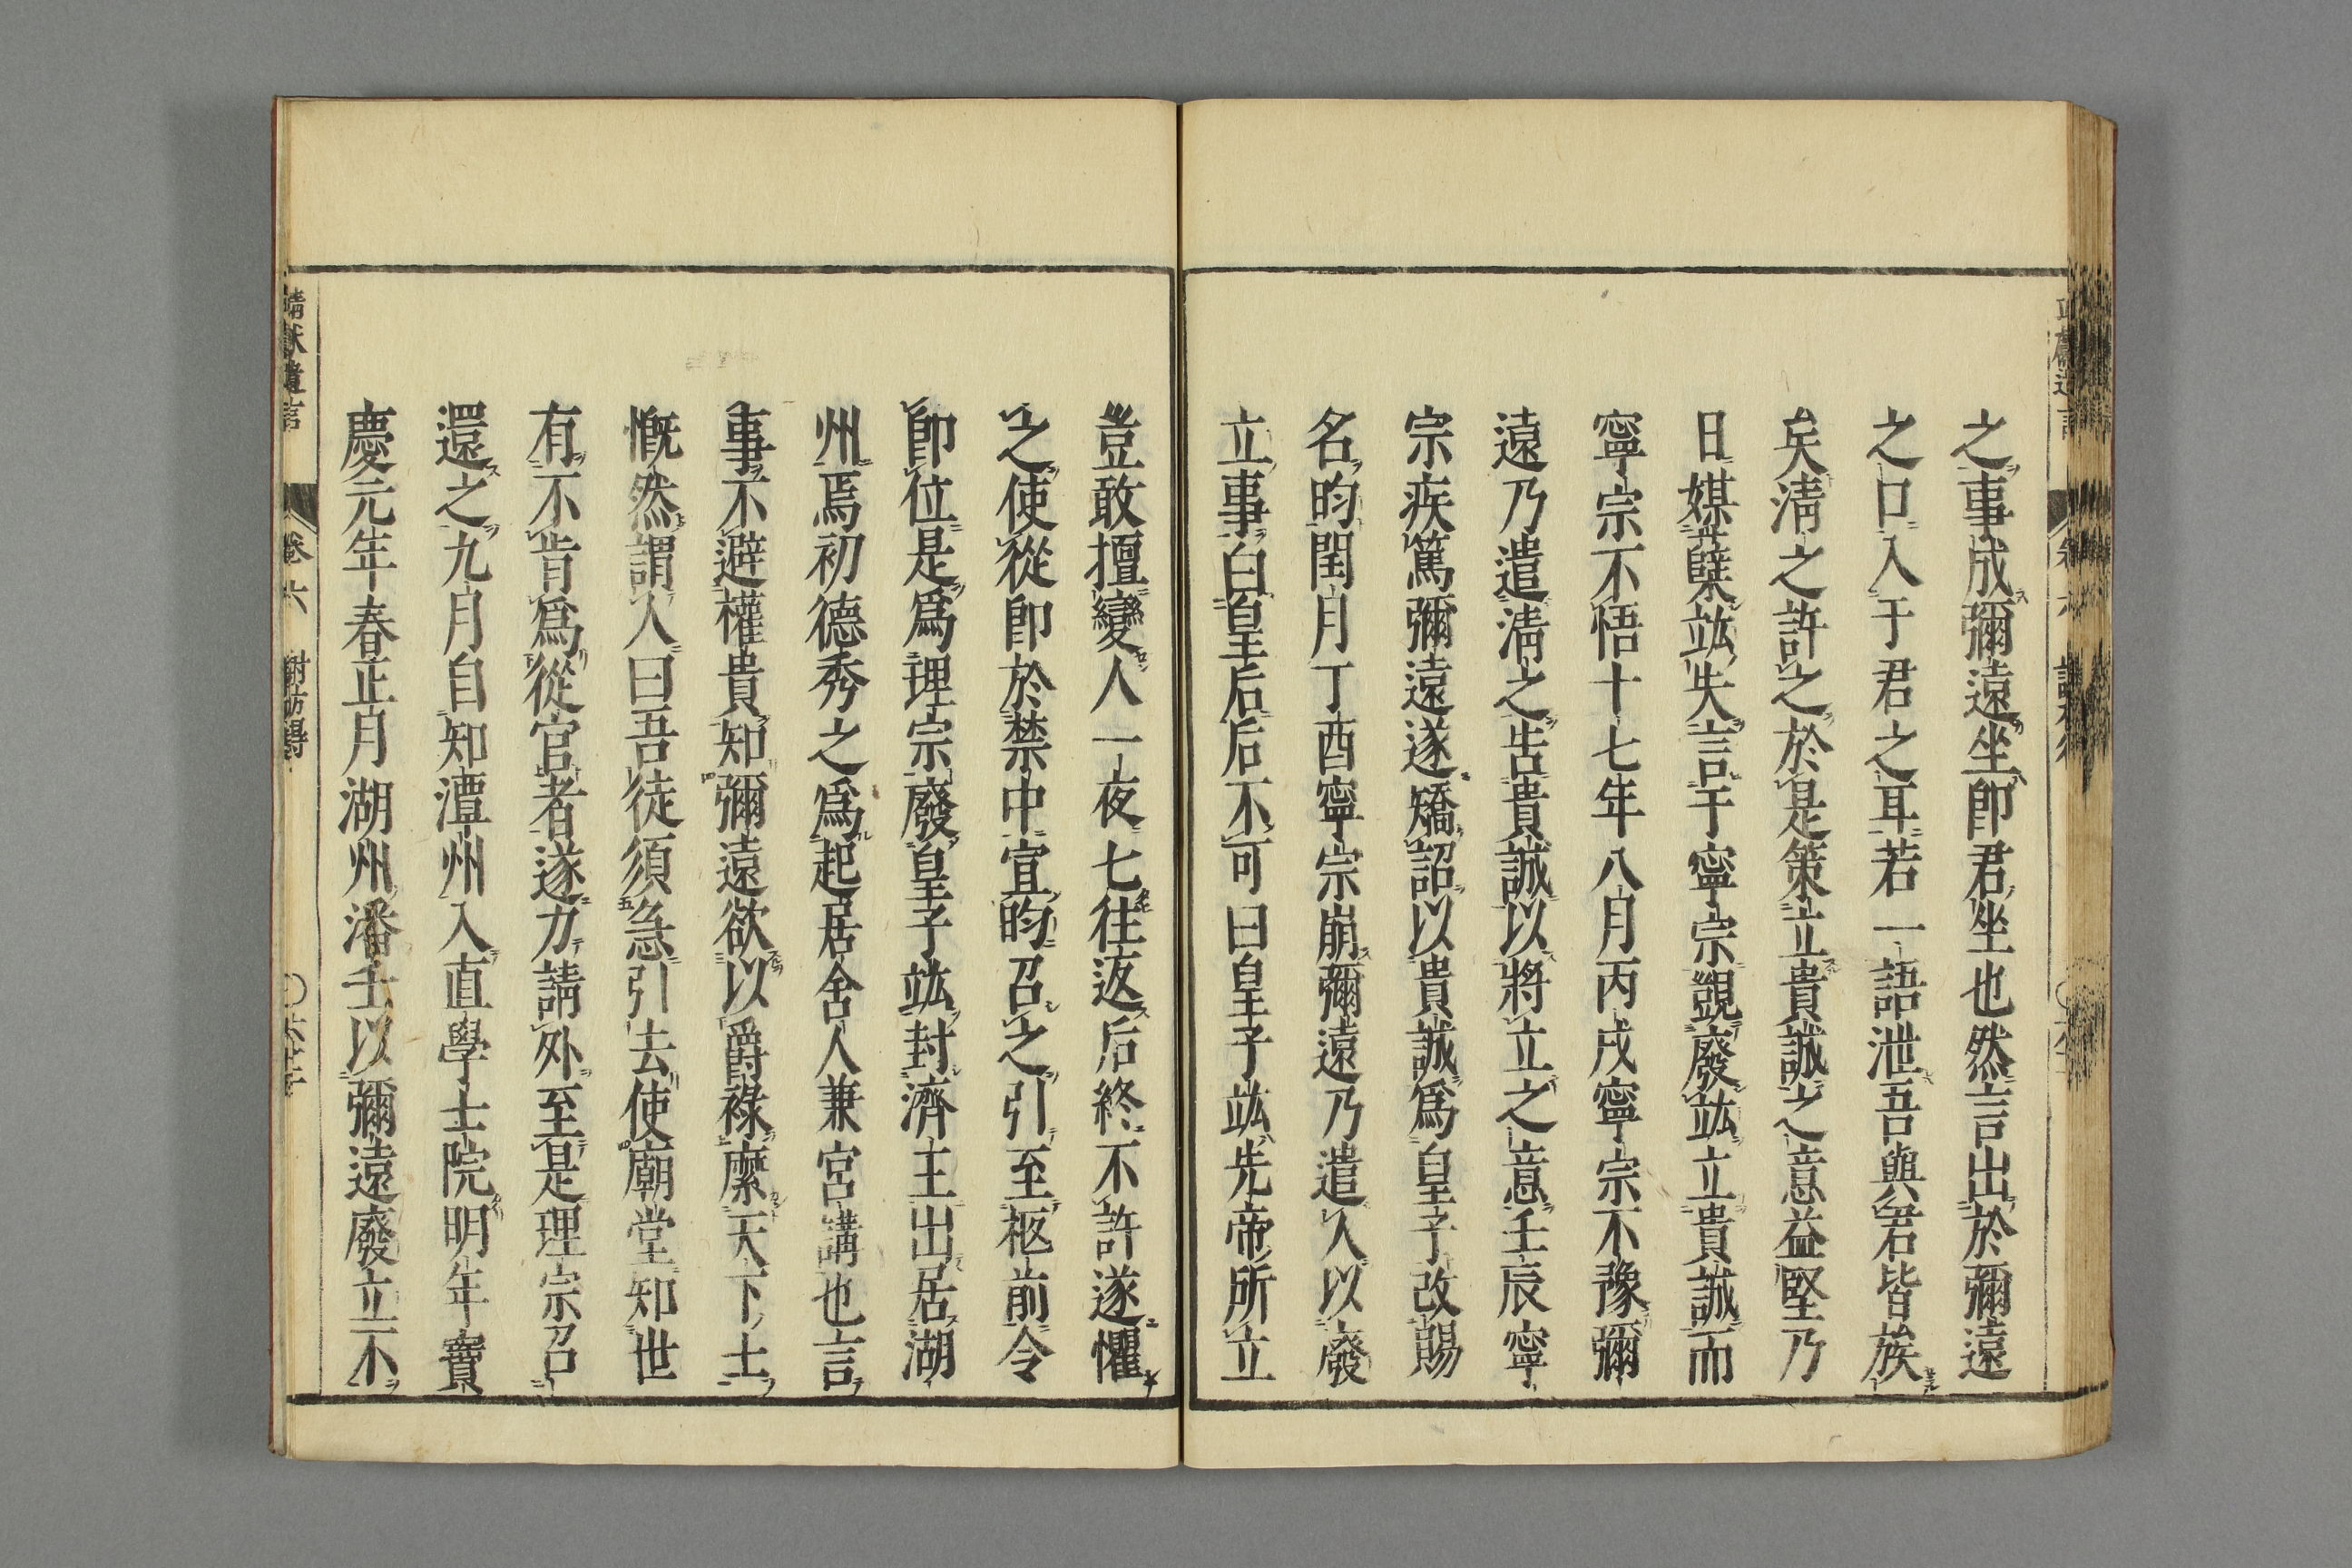 之事成彌遠坐即君坐也然言出於彌遠
之口入于君之耳若一語泄吾與君皆族
矣淸之許之於是策立貴誠之意益堅乃
日媒蘖竑失言于寧宗覬廢竑立貴誠而
寧宗不悟十七年八月丙戌寧宗不豫彌
遠乃遣淸之告貴誠以將立之意壬辰寧
宗疾篤彌遠遂矯詔以貴誠爲皇子改賜
名昀閏月丁酉寧宗崩彌遠乃遣人以廢
立事白皇后后不可曰皇子竑先帝所立
豈敢擅變人一夜七往返后終不許遂懼
之使從即於禁中宣昀召之引至柩前令
即位是爲理宗廢皇子竑封濟王出居湖
州焉初德秀之爲起居舍人兼宮講也言
事不避權貴知彌遠欲以爵祿縻天下士
慨然謂人曰吾徒須急引去使廟堂知世
有不肯爲從官者遂力請外至是理宗召
還之九月自知潭州入直學士院明年寶
慶元年春正月湖州潘壬以彌遠廢立不
靖獻遺言 卷六 謝枋得